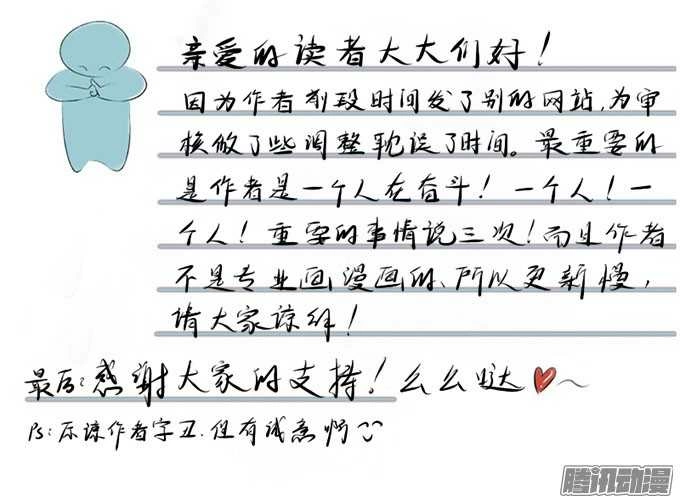 亲爱的读者大大们好！
因为作者前段时间发了别的网站,为审
核做了些调整耽误了时间。最重要的
是作者是一个人在奋斗！一个人！一
个人！重要的事情说三次！而且作者
不是专业画漫画的、所以更新慢，
请大家谅解！
最后:感谢大家的支持！么么哒
Ps:原谅作者字丑.但有诚意啊
腾讯动漫